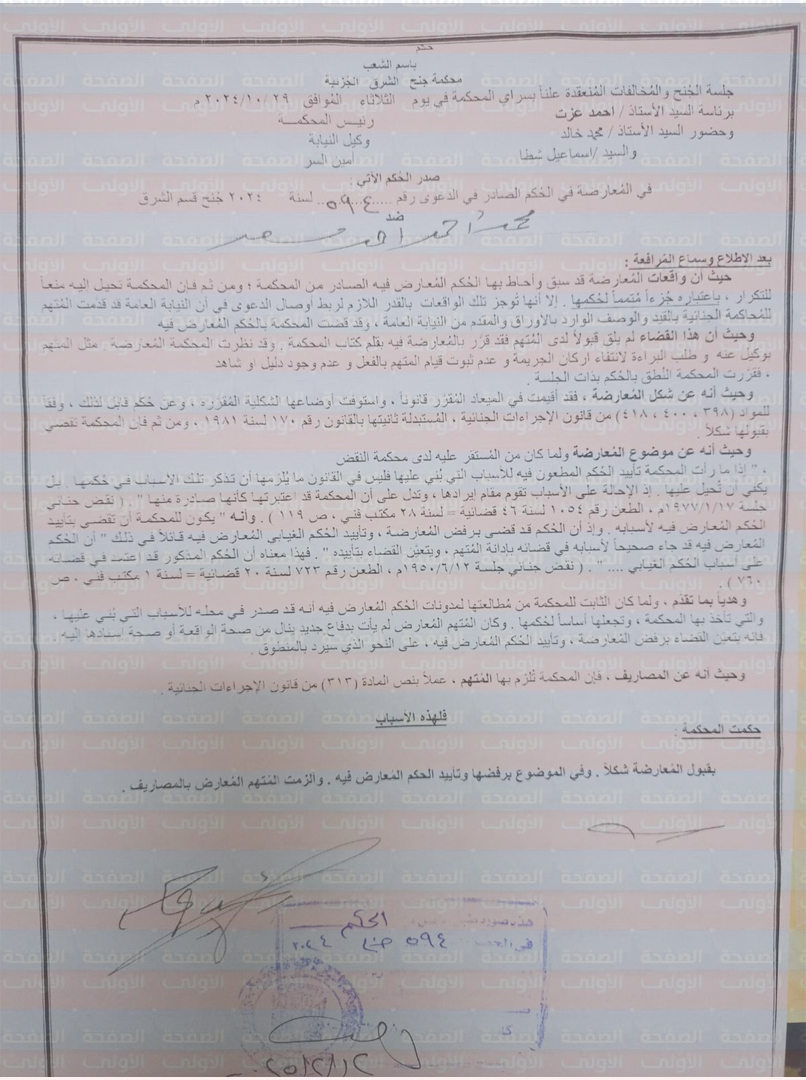 حكم
باسم الشعب
محكمة جنح الشرق الجزئية
جلسة الجُنح والمُخالفات المُنعقدة علناً بسراي المحكمة في يوم الثلاثاء المُوافق ٢٩ /١٠/ ٢٠٢٤ م
برئاسة السيد الأستاذ / احمد عزت رئيس المحكمة
وحضور السيد الأستاذ / محمد خالد وكيل النيابة
والسيد /اسماعيل شطا أمين السر
صدر الحُكم الآتي :
في المُعارضة في الحُكم الصادر في الدعوى رقم ......٥٩٤... لسنة ٢٠٢٤ جُنح قسم الشرق
ضد
محمد احمد احمد
بعد الإطلاع وسماع المُرافعة :
حيث أن واقعات المُعارضة قد سبق وأحاط بها الحُكم المُعارض فيه الصادر من المحكمة ؛ ومن ثم فإن المحكمة تحيل إليه منعاً
للتكرار ، بإعتباره جُزءاً مُتمماً لحُكمها . إلا أنها تُوجز تلك الواقعات بالقدر اللازم لربط أوصال الدعوى في أن النيابة العامة قد قدمت المُتهم
للمُحاكمة الجنائية بالقيد والوصف الوارد بالأوراق والمقدم من النيابة العامة ، وقد قضت المحكمة بالحُكم المُعارض فيه
وحيث أن هذا القضاء لم يلق قبولاً لدى المُتهم فقد قرر بالمُعارضة فيه بقلم كتاب المحكمة . وقد نظرت المحكمة المُعارضة . مثل المتهم
بوكيل عنه و طلب البراءة لانتفاء اركان الجريمة و عدم ثبوت قيام المتهم بالفعل و عدم وجود دليل او شاهد
، فقررت المحكمة النُطق بالحُكم بذات الجلسة .
وحيث أنه عن شكل المُعارضة ، فقد أقيمت في الميعاد المُقرر قانوناً ، واستوفت أوضاعها الشكلية المُقررة ، وعن حُكم قابل لذلك ، وفقاً
للمواد (٣٩٨ ، ٤٠٠ ، ٤١٨) من قانون الإجراءات الجنائية ، المُستبدلة ثانيتها بالقانون رقم ١٧٠ لسنة ١٩٨١ ، ومن ثم فإن المحكمة تقضي
بقبولها شكلاً .
وحيث أنه عن موضوع المُعارضة ولما كان من المُستقر عليه لدى محكمة النقض
، " إذا ما رأت المحكمة تأييد الحُكم المطعون فيه للأسباب التي بُني عليها فليس في القانون ما يُلزمها أن تذكر تلك الأسباب في حُكمها . بل
يكفي أن تُحيل عليها . إذ الإحالة على الأسباب تقوم مقام إيرادها ، وتدل على أن المحكمة قد اعتبرتها كأنها صادرة منها " . ( نقض جنائي
جلسة ١٩٧٧/١/١٧م ، الطعن رقم ١٠٥٤ لسنة ٤٦ قضائية = لسنة ٢٨ مكتب فني ، ص ١١٩ ) . وأنه " يكون للمحكمة أن تقضي بتأييد
الحُكم المُعارض فيه لأسبابه . وإذ أن الحُكم قد قضى برفض المُعارضة ، وتأييد الحُكم الغيابي المُعارض فيه قائلاً في ذلك " أن الحُكم
المُعارض فيه قد جاء صحيحاً لأسبابه في قضائه بإدانة المُتهم ، ويتعين القضاء بتأييده " . فهذا معناه أن الحُكم المذكور قد اعتمد في قضائه
على أسباب الحُكم الغيابي .... " . ( نقض جنائي جلسة ١٩٥٠/٦/١٢م ، الطعن رقم ٧٢٣ لسنة ٢٠ قضائية = لسنة ١ مكتب فني ، ص
٧٦٠ ) .
وهدياً بما تقدم ، ولما كان الثابت للمحكمة من مُطالعتها لمدونات الحُكم المُعارض فيه أنه قد صدر في محله للأسباب التي بُني عليها ،
والتي تأخذ بها المحكمة ، وتجعلها أساساً لحُكمها . وكان المُتهم المُعارض لم يأت بدفاع جديد ينال من صحة الواقعة أو صحة إسنادها إليه
فإنه يتعين القضاء برفض المُعارضة ، وتأييد الحُكم المُعارض فيه ، على النحو الذي سيرد بالمنطوق .
وحيث أنه عن المصاريف ، فإن المحكمة تُلزم بها المُتهم ، عملاً بنص المادة (٣١٣) من قانون الإجراءات الجنائية .
فلهذه الأسباب
حكمت المحكمة :
بقبول المُعارضة شكلاً . وفي الموضوع برفضها وتأييد الحكم المُعارض فيه . والزمت المُتهم المُعارض بالمصاريف .
هذه صورة الحكم
في ٥٩٤ ٢٠٢٤
الصفحة الأولى